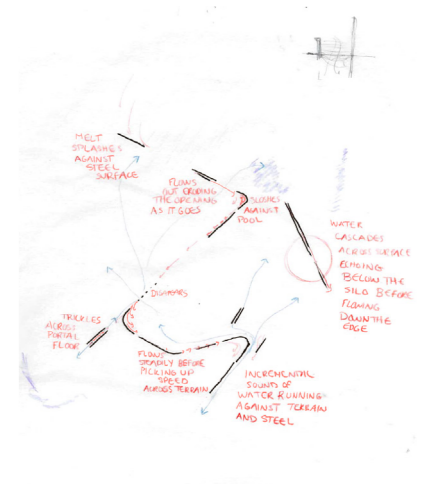 MELT
SPLASHES
AGAINST
STEEL
SURFACE
FLOWS
OUT ERODING
THE OPENING
AS IT GOES
SLOSHES
AGAINST
POOL
WATER
CASCADES
ACROSS SURFACE
ECHOING
BELOW THE
SILO BEFORE
FLOWING
DOWN THE
EDGE
DISAPEARS
TRICKLES
ACROSS
PORTAL
FLOOR
FLOWS
STEADILY BEFORE
PICKING UP
SPEED
ACROSS TERRAIN
INCREMENTAL
SOUND OF
WATER RUNNING
AGAINST TERRAIN
AND STEEL